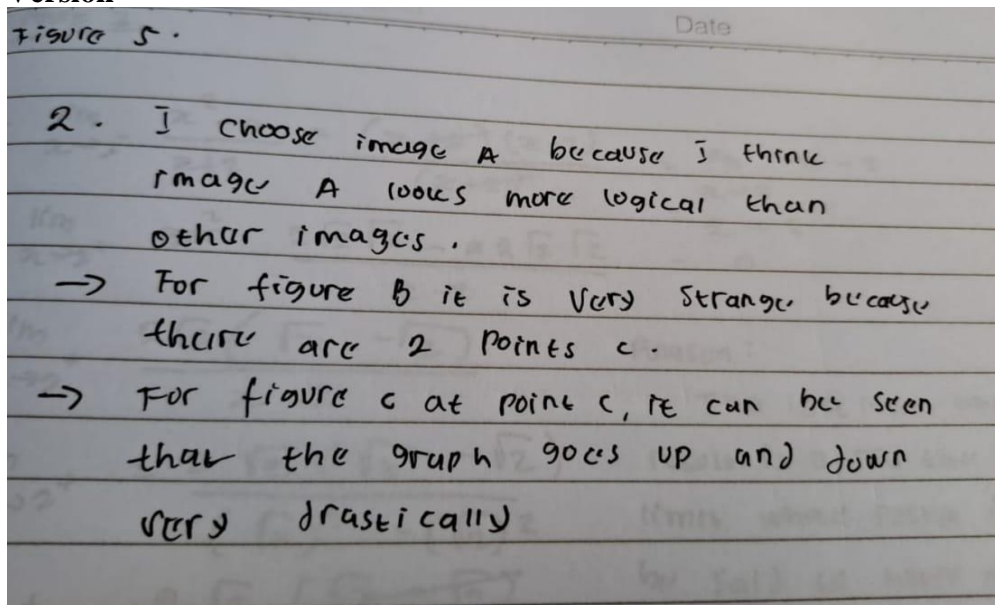 Version
Figure 5.
Date
2. I choose image A because I think
image A looks more logical than
other images.
→ For figure B it is very strange because
there are 2 points c.
→ For figure c at point c, it can be seen
that the graph goes up and down
very drastically